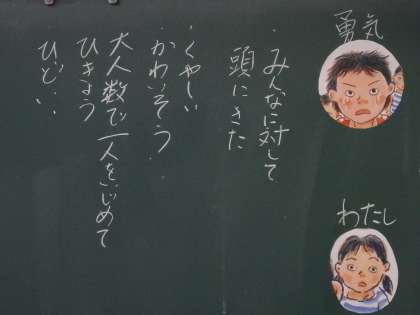 勇気
・みんなに対して
頭にきた
・くやしい
かわいそう
大人数で一人をいじめて
ひきょう
ひどい
わたし